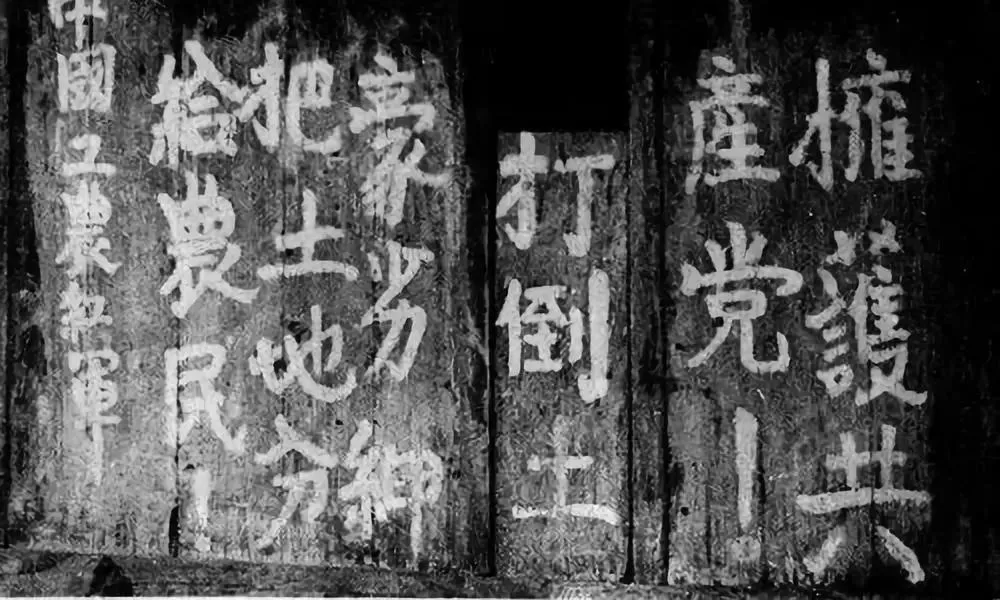 擁護共
産党!
打倒土
豪劣紳
把土地分
給農民!
中國工農紅軍